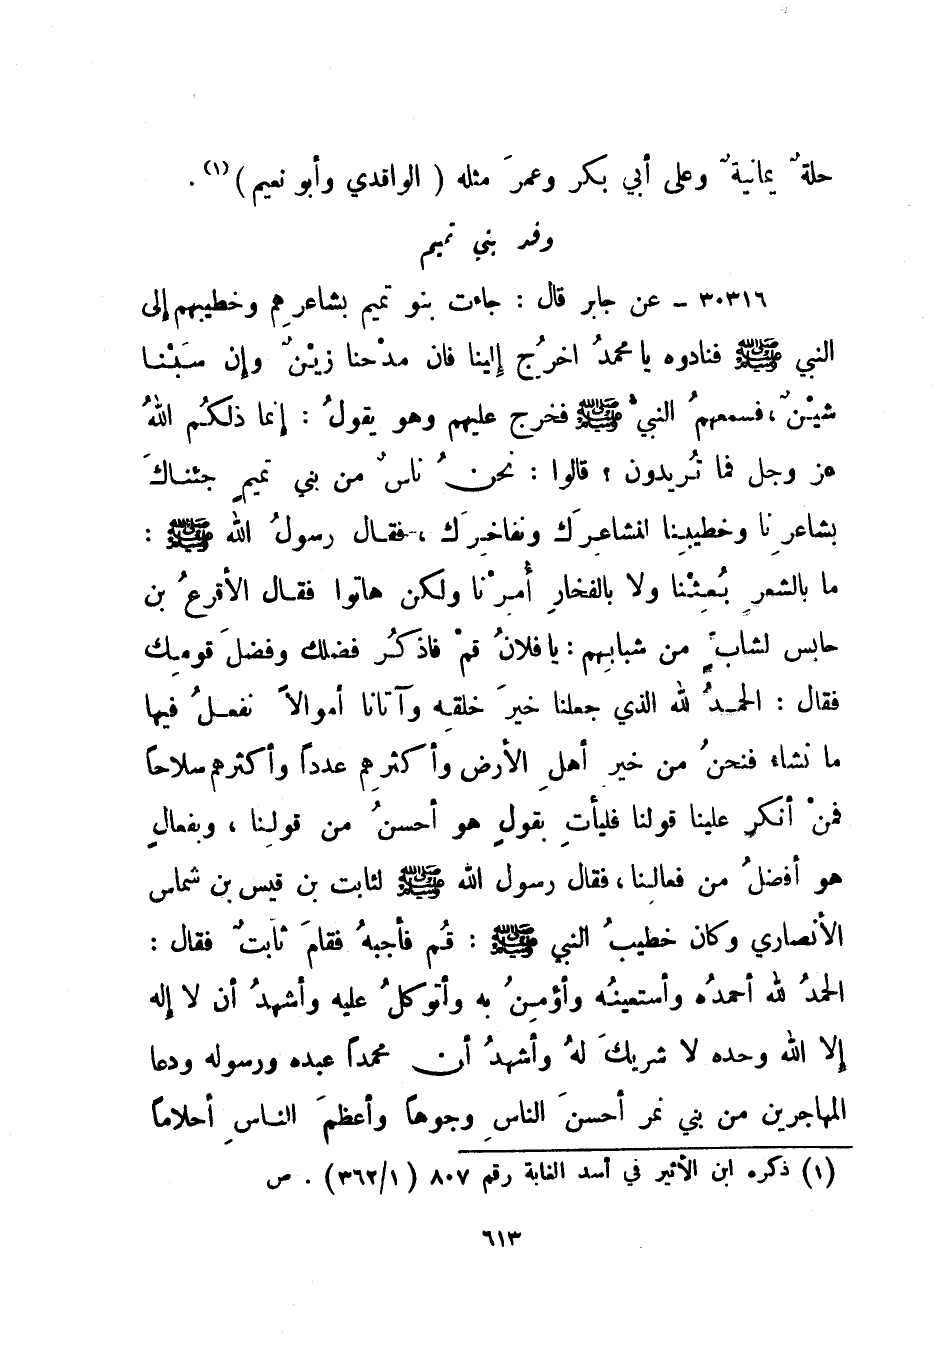 حلةٌ يمانيةٌ وعلى أبي بكر وعمرَ مثله ( الواقدي وأبو نعيم )(١) .
وفد بني تميم
٣٠٣١٦ - عن جابر قال : جاءت بنو تميم بشاعرِهم وخطيبهم إلى
النبي ﷺ فنادوه يا محمدُ اخرُج إلينا فان مدْحنا زيْنٌ وإن سَبْنا
شيْنٌ ، فسمعهمُ النبيُّ ﷺ فخرج عليهم وهو يقولُ : إنما ذلكُم اللهُ
عز وجل فما تُريدون ؟ قالوا : نحنُ ناسٌ من بني تميمٍ جئناكَ
بشاعرِنا وخطيبِنا لنشاعِرَك ونفاخِرَك ، فقال رسولُ الله ﷺ :
ما بالشعرِ بُعِثْنا ولا بالفخارِ أُمِرْنا ولكن هاتوا فقال الأقرعُ بن
حابس لشابٍّ من شبابِهم : يا فلانُ قمْ فاذكُر فضلك وفضلَ قومِك
فقال : الحمدُ لله الذي جعلنا خيرَ خلقِه وآتانا أموالاً نفعلُ فيها
ما نشاء فنحنُ من خيرِ أهلِ الأرض وأكثرِهم عدداً وأكثرهم سلاحاً
فمنْ أنكر علينا قولنا فليأتِ بقولٍ هو أحسنُ من قولِنا ، وبفعالٍ
هو أفضلُ من فعالِنا ، فقال رسول الله ﷺ لثابت بن قيس بن شماس
الأنصاري وكان خطيبُ النبي ﷺ : قُم فأجبهُ فقامَ ثابتٌ فقال :
الحمدُ لله أحمدُه وأستعينُه وأؤمِنُ به وأتوكلُ عليه وأشهدُ أن لا إله
إلا الله وحده لا شريكَ لهُ وأشهدُ أن محمداً عبده ورسوله ودعا
المهاجرين من بني نمر أحسنَ الناسِ وجوهاً وأعظمَ الناسِ أحلاماً
(١) ذكره ابن الأثير في أسد الغابة رقم ٨٠٧ ( ٣٦٢/١ ) . ص
٦١٣